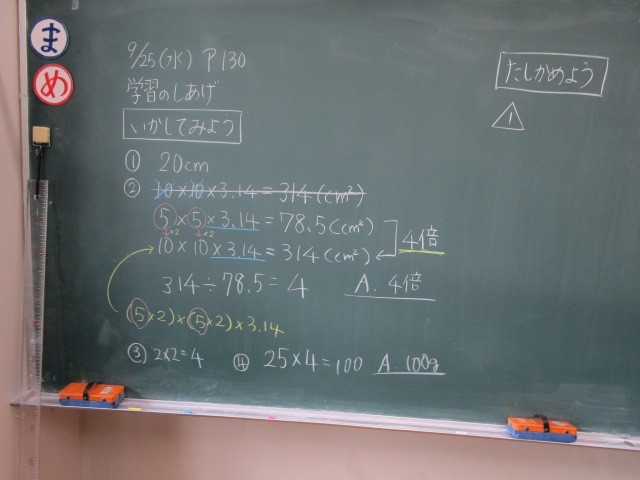 ま
め
9/25(水) P130
学習のしあげ
いかしてみよう
① 20cm
② 10×10×3.14=314(cm²)
5×5×3.14=78.5(cm²)
↓×2 ↓×2
10×10×3.14=314(cm²)
4倍
314÷78.5=4 A. 4倍
(5×2)×(5×2)×3.14
③ 2×2=4 ④ 25×4=100 A 100g
たしかめよう
1